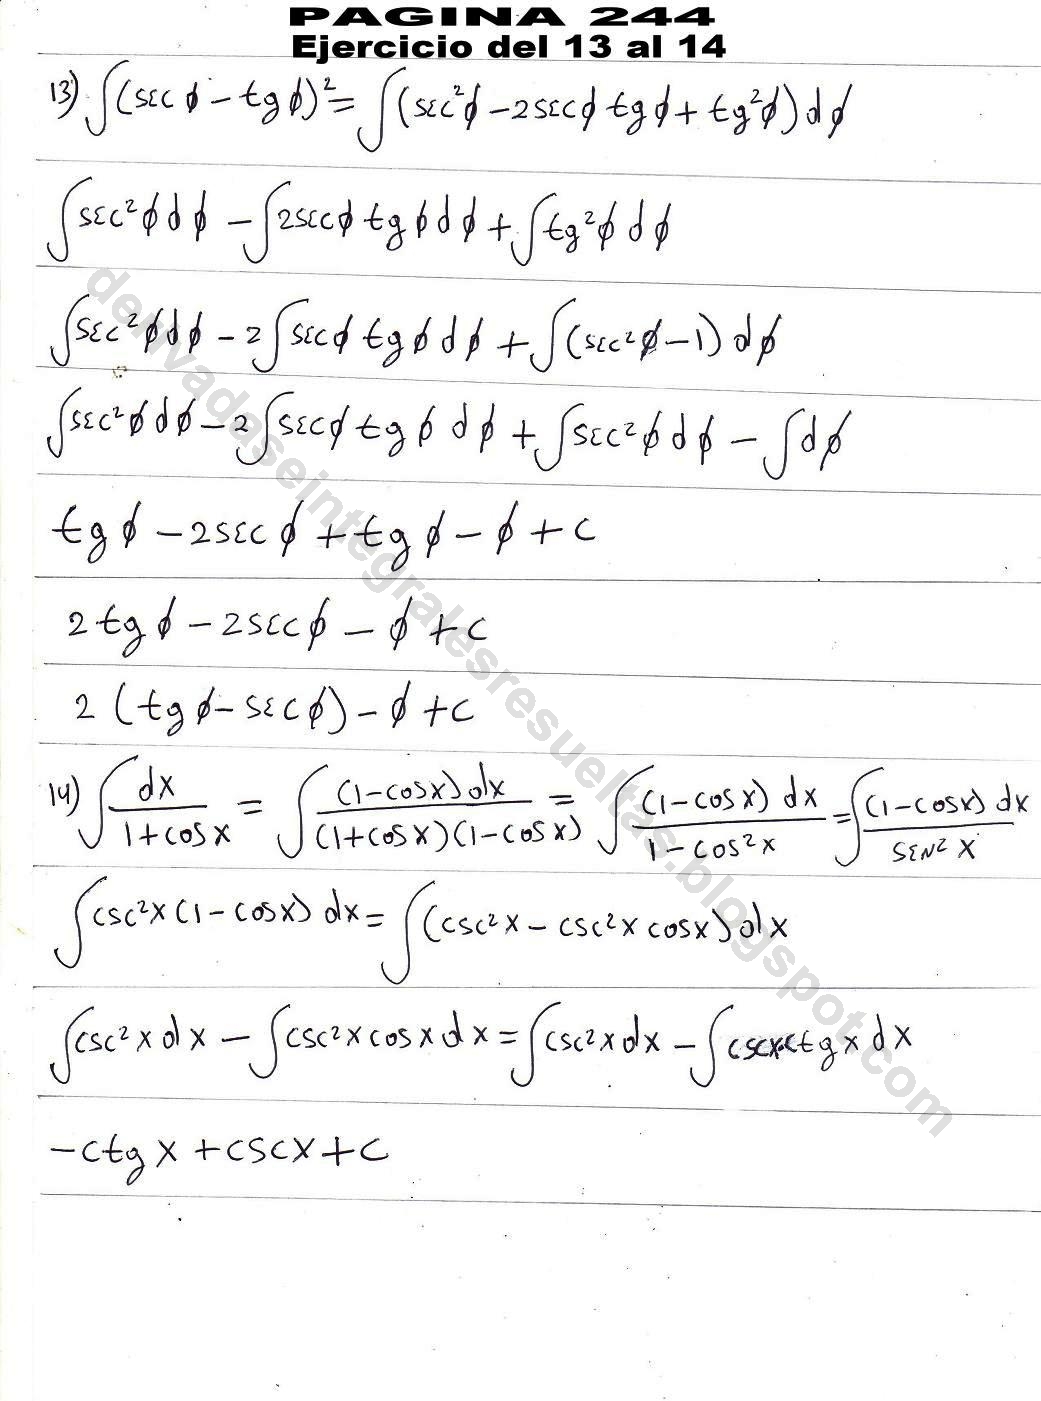 PAGINA 244
Ejercicio del 13 al 14
13) ∫(sec ϕ - tg ϕ)² = ∫(sec²ϕ - 2 sec ϕ tg ϕ + tg²ϕ) dϕ
∫sec²ϕ dϕ - ∫2 sec ϕ tg ϕ dϕ + ∫tg²ϕ dϕ
∫sec²ϕ dϕ - 2∫sec ϕ tg ϕ dϕ + ∫(sec²ϕ - 1) dϕ
∫sec²ϕ dϕ - 2∫sec ϕ tg ϕ dϕ + ∫sec²ϕ dϕ - ∫dϕ
tg ϕ - 2 sec ϕ + tg ϕ - ϕ + c
2 tg ϕ - 2 sec ϕ - ϕ + c
2 (tg ϕ - sec ϕ) - ϕ + c
14) ∫ dx / (1 + cos x) = ∫ (1 - cos x) dx / (1 + cos x)(1 - cos x) = ∫ (1 - cos x) dx / (1 - cos² x) = ∫ (1 - cos x) dx / sen² x
∫csc²x (1 - cos x) dx = ∫(csc² x - csc² x cos x) dx
∫csc² x dx - ∫csc² x cos x dx = ∫csc² x dx - ∫csc x ctg x dx
- ctg x + csc x + c
derivadaseintegralesresueltas.blogspot.com